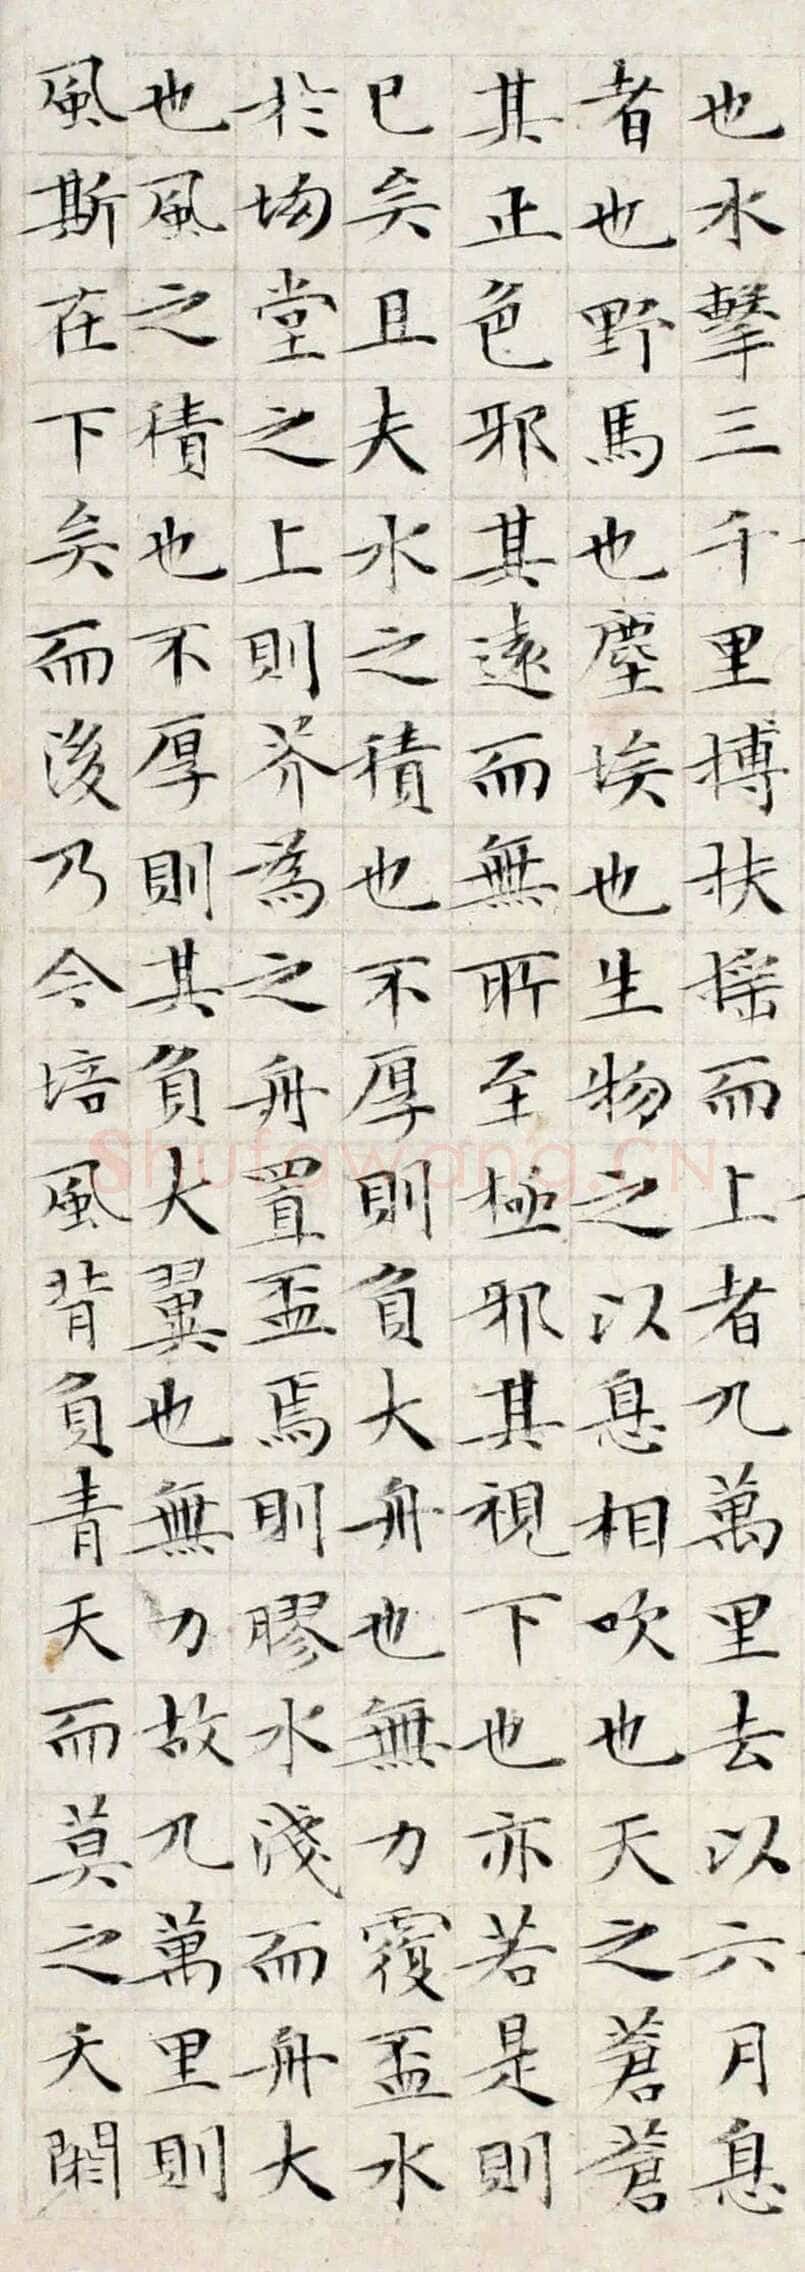 也水擊三千里搏扶摇而上者九萬里去以六月息
者也野馬也塵埃也生物之以息相吹也天之蒼蒼
其正色邪其遠而無所至極邪其視下也亦若是則
已矣且夫水之積也不厚則負大舟也無力覆盃水
於坳堂之上則芥為之舟置盃焉則膠水淺而舟大
也風之積也不厚則其負大翼也無力故九萬里則
風斯在下矣而後乃今培風背負青天而莫之夭閼
Shufawang.CN